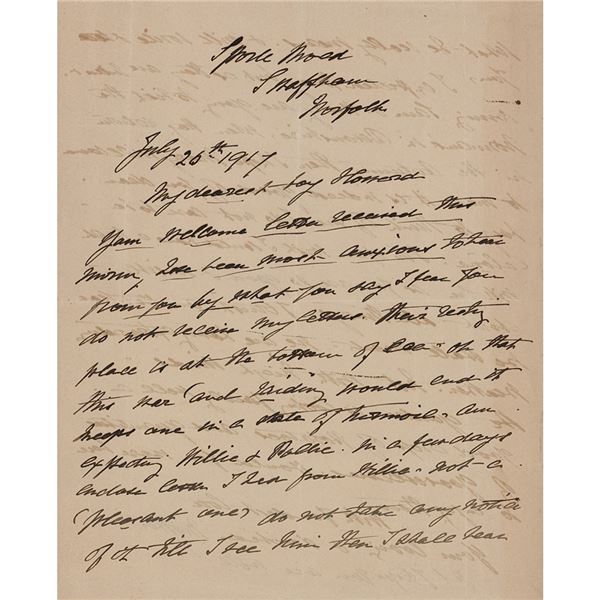 Sporle Road
Swaffham
Norfolk
July 26th 1917
My dearest boy Howard
Your welcome letter received this
morn, I've been most anxious to hear
from you by what you say I fear you
do not receive my letters. Their resting
place is at the bottom of sea - oh that
this war (and raiding would end it
keeps one in a state of turmoil - am
expecting Willie & Pollie. in a few days
enclose letter I had from Willie - not a
(pleasant one) do not take any notice
of it till I see him then I shall hear